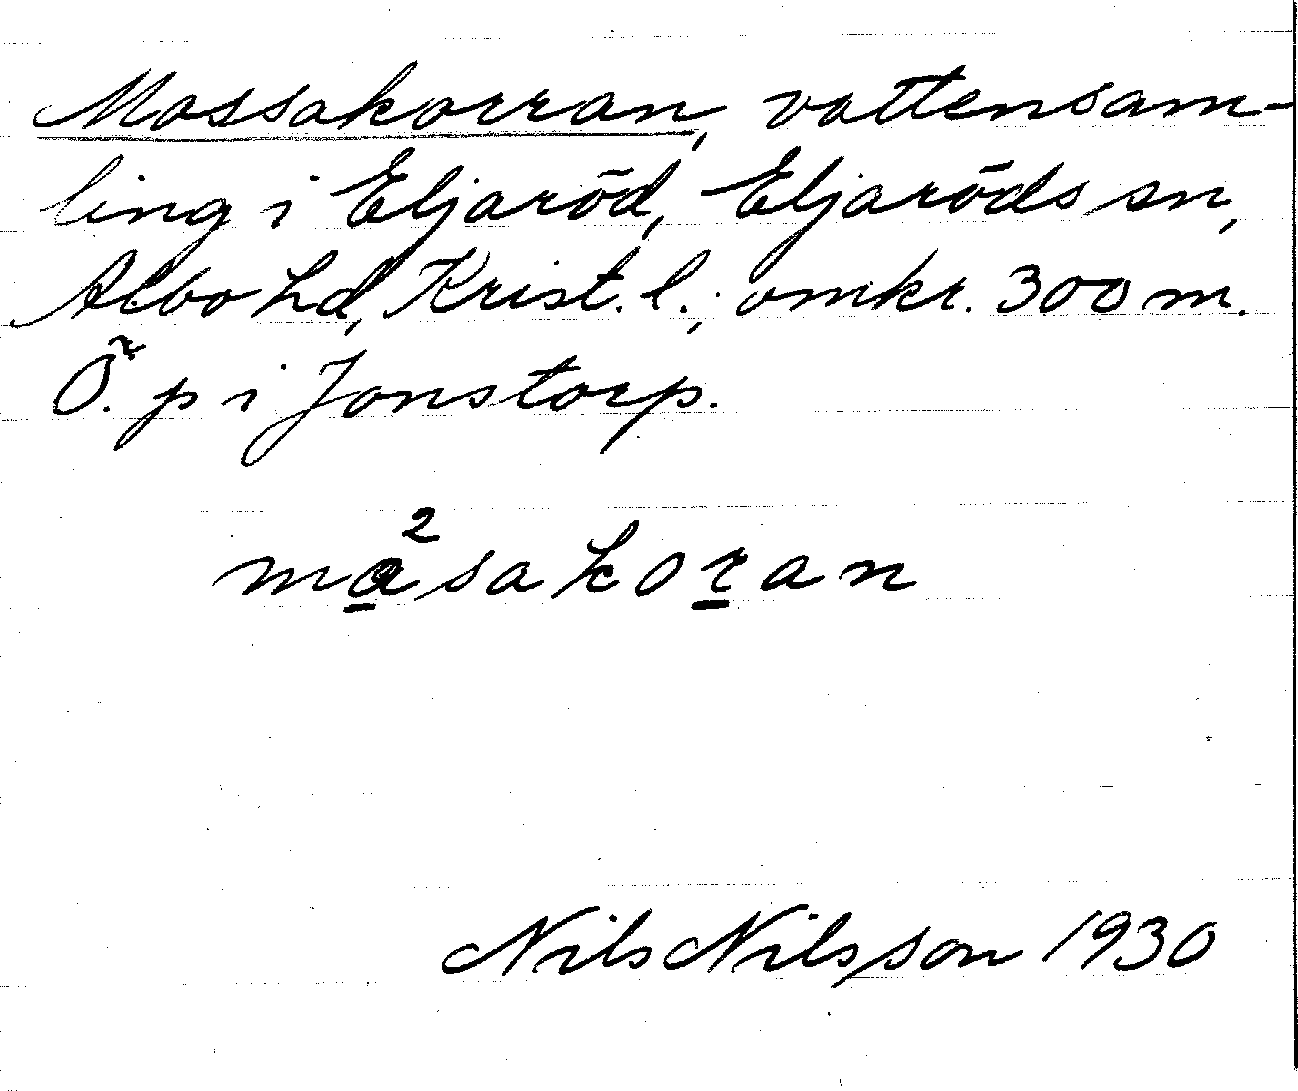 Mossakorran, vattensam-
ling i Eljaröd, Eljaröds sn,
Albo hd, Krist. l.; omkr. 300 m.
Ö. p i Jonstorp.
ma̲²sakor̲an
Nils Nilsson 1930